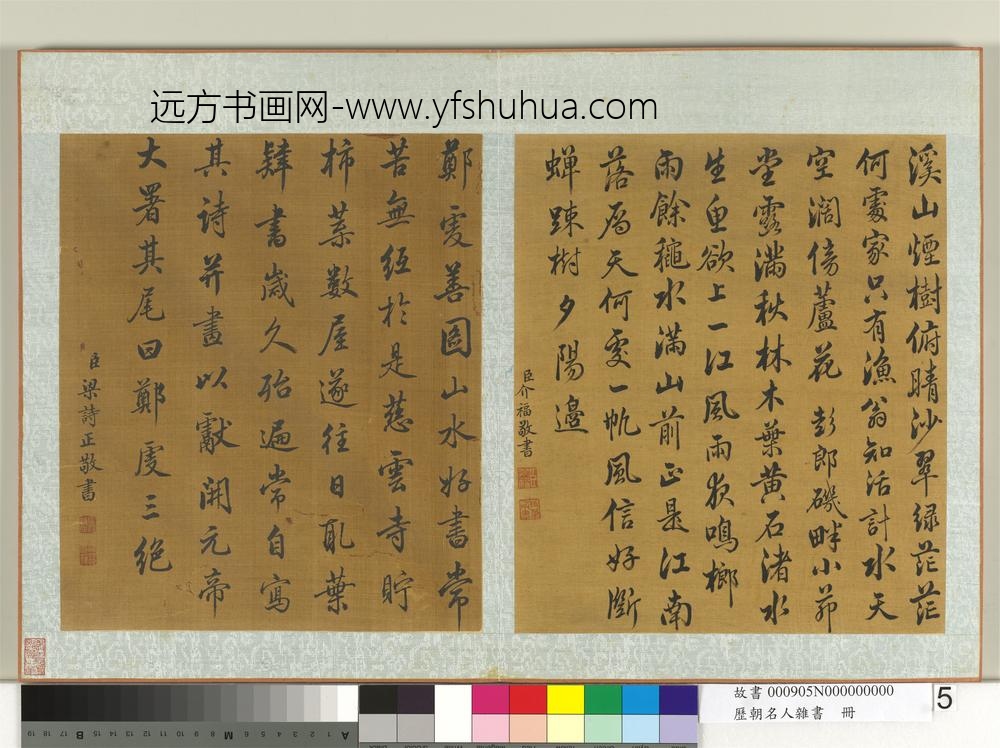 远方书画网-www.yfshuhua.com
溪山煙樹俯晴沙翠綠茫茫
何處家只有漁翁知活計水天
空濶傍蘆花 彭郎磯畔小茆
堂露滿秋林木葉黄石渚水
生魚欲上一江風雨夜鳴榔
雨餘穐水滿山前正是江南
落雁天何處一帆風信好斷
蟬踈樹夕陽邊
臣介福敬書
鄭虔善圖山水好書常
苦無紙於是慈雲寺貯
柿葉數屋遂往日取葉
肄書歲久殆遍常自寫
其詩并畫以獻開元帝
大署其尾曰鄭虔三絶
臣梁詩正敬書
故書 000905N000000000
歷朝名人雜書 冊
5